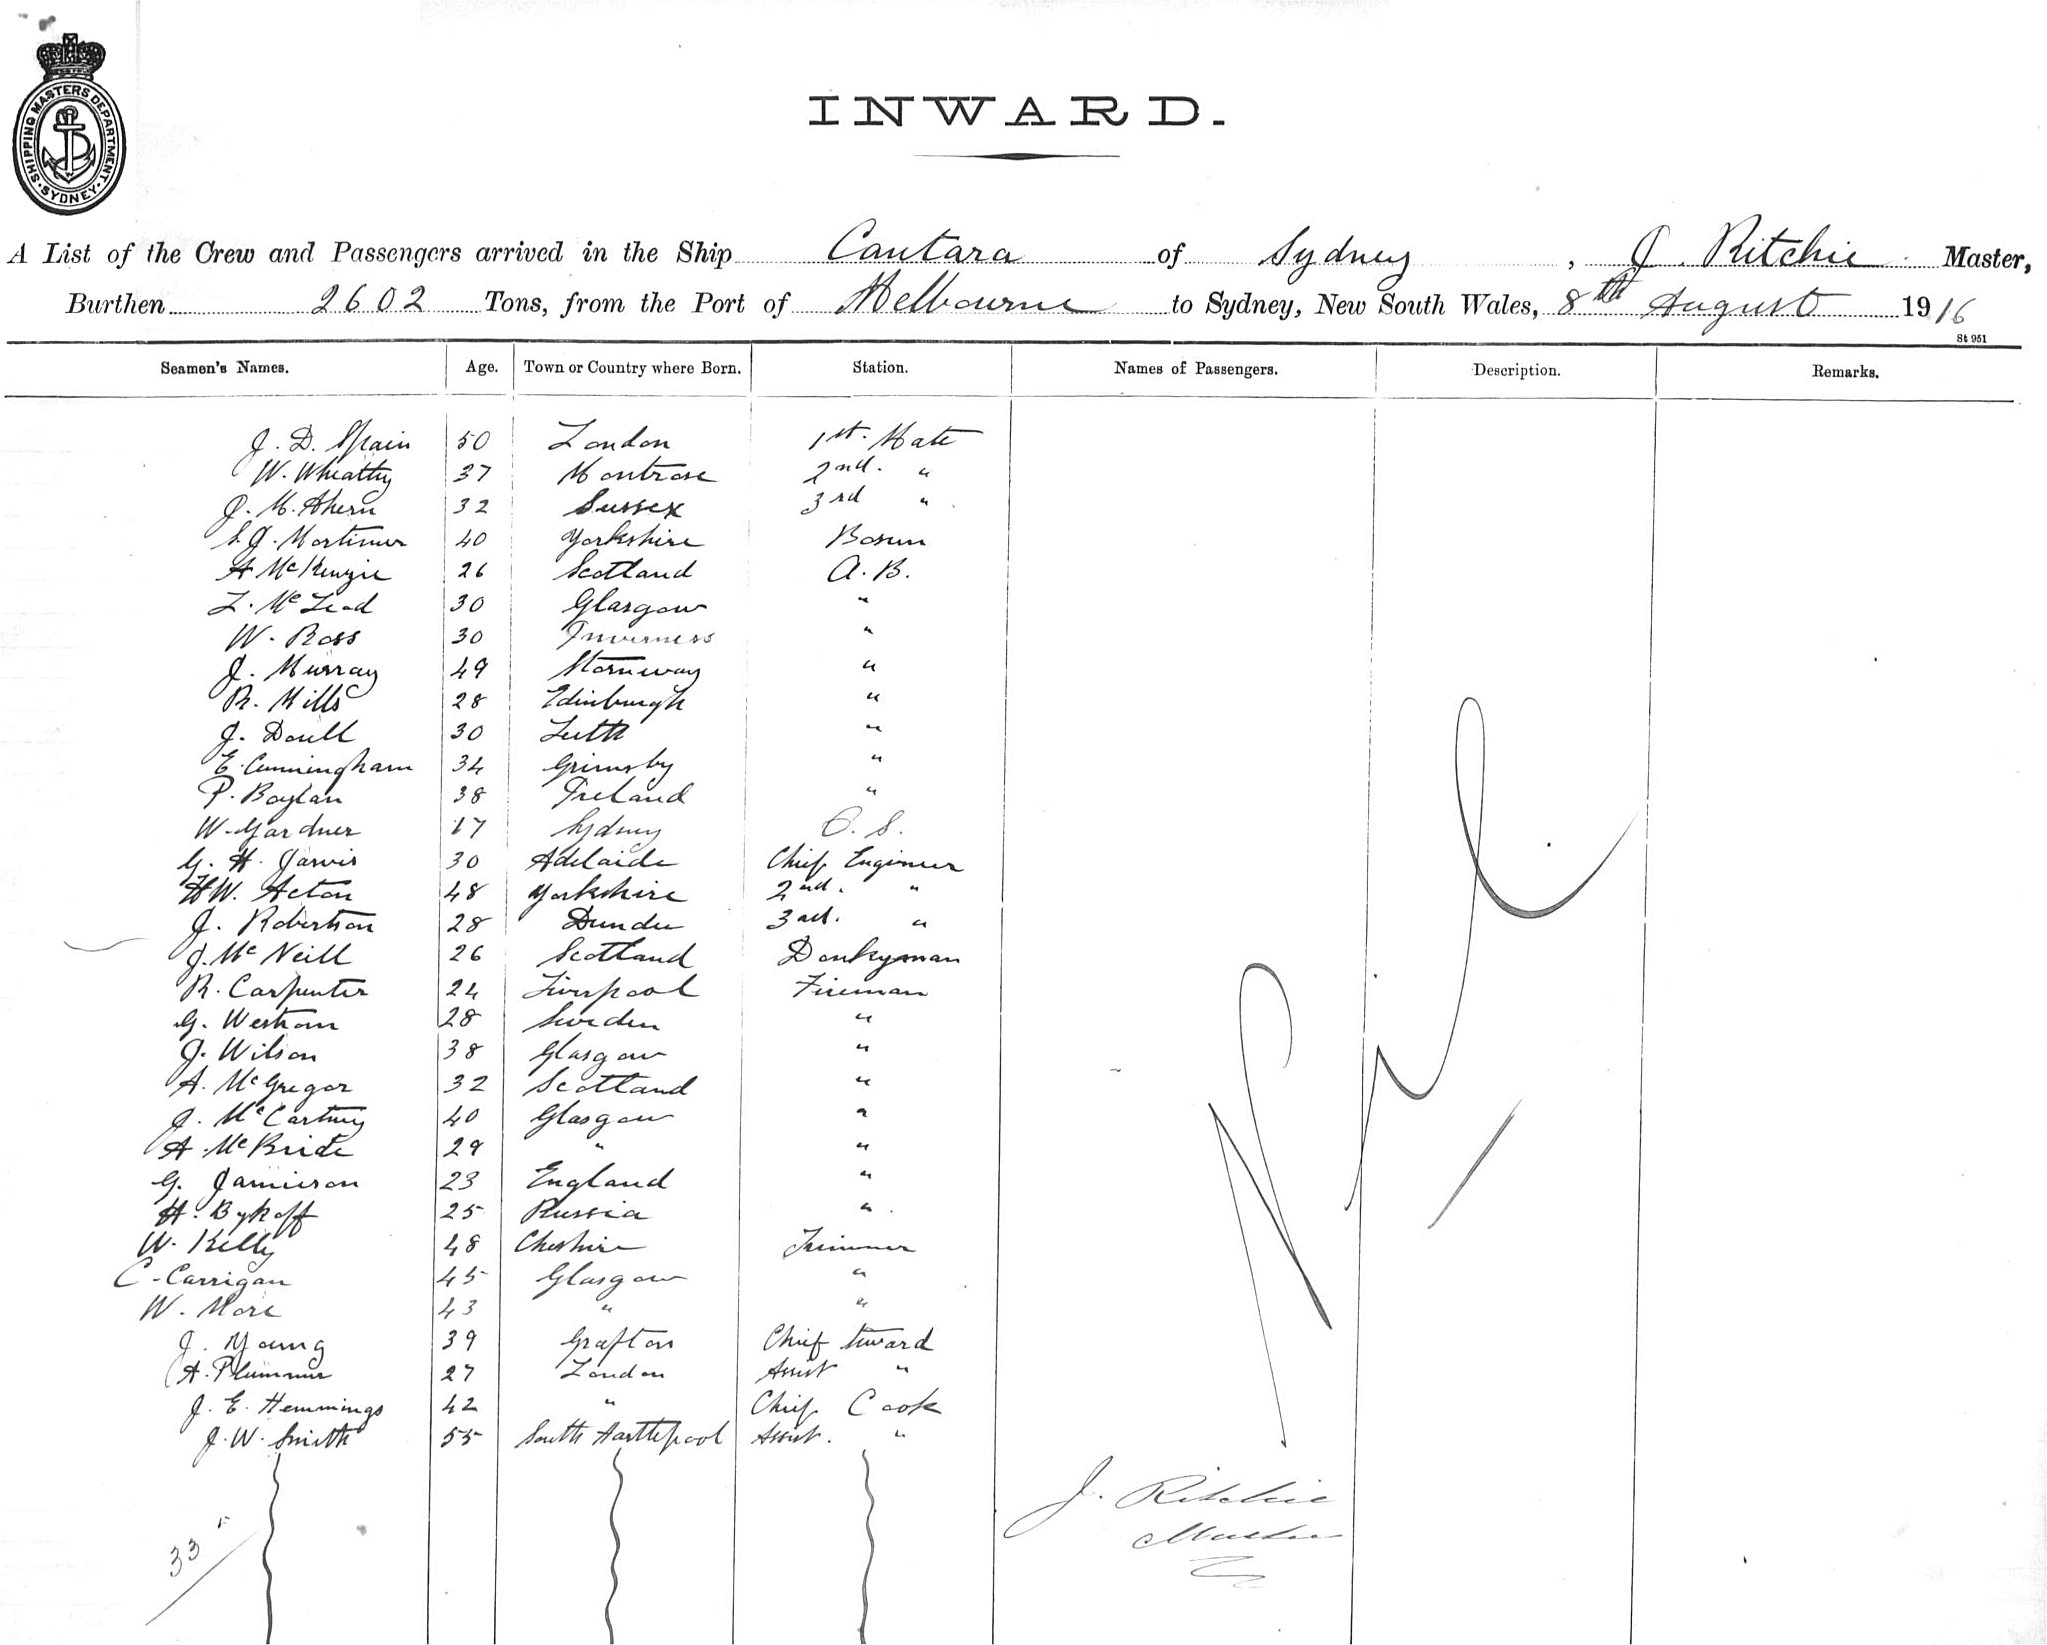 SHIPPING MASTERS DEPARTMENT. SYDNEY.
INWARD.
A List of the Crew and Passengers arrived in the Ship Cantara of Sydney, J. Ritchie Master,
Burthen 2602 Tons, from the Port of Melbourne to Sydney, New South Wales, 8th August 1916
St 951
Seamen's Names. Age. Town or Country where Born. Station. Names of Passengers. Description. Remarks.
J. D. Spain 50 London 1st. Mate
W. Wheatley 37 Montrose 2nd. "
J. M. Ahern 32 Sussex 3rd "
S. J. Mortimer 40 Yorkshire Bosun
A McKenzie 26 Scotland A. B.
L. McLeod 30 Glasgow "
W. Ross 30 Inverness "
J. Murray 49 Storneway "
R. Mills 28 Edinburgh "
J. Doull 30 Leith "
E. Cunningham 34 Grimsby "
P. Boylan 38 Ireland "
W. Gardner 17 Sydney O. S.
G. H. Jarvis 30 Adelaide Chief Engineer
H W. Acton 48 Yorkshire 2nd. "
J. Robertson 28 Dundee 3rd. "
J. McNeill 26 Scotland Donkyman
R. Carpenter 24 Liverpool Fireman
G. Westrom 28 Sweden "
J. Wilson 38 Glasgow "
A. McGregor 32 Scotland "
J. McCartney 40 Glasgow "
A. McBride 29 " "
G. Jamieson 23 England "
H. Bykoff 25 Russia "
W. Kelly 48 Cheshire Trimmer
C. Carrigan 45 Glasgow "
W. More 43 " "
J. Young 39 Grafton Chief Steward
A. Plummer 27 London Assist "
J. E. Hemmings 42 " Chief Cook
J. W. Smith 55 South Hartlepool Assist. "
Nil
J. Ritchie
Master
33